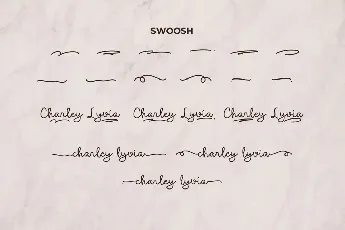 SWOOSH
Charley Lyvia Charley Lyvia Charley Lyvia
charley lyvia charley lyvia
charley lyvia